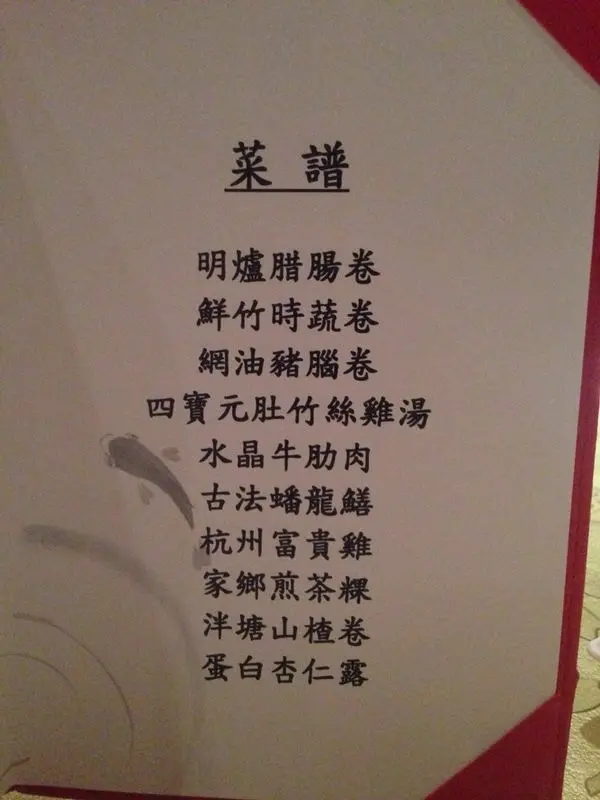 菜譜
明爐腊腸卷
鮮竹時蔬卷
網油豬腦卷
四寶元肚竹絲雞湯
水晶牛肋肉
古法蟠龍鱔
杭州富貴雞
家鄉煎茶粿
泮塘山楂卷
蛋白杏仁露